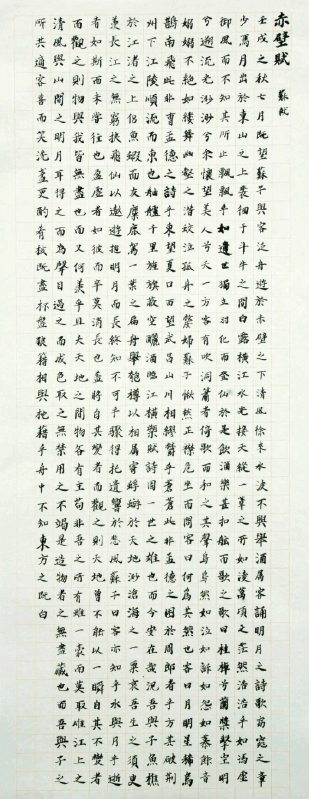 赤壁賦 蘇軾
壬戌之秋七月既望蘇子與客泛舟遊於赤壁之下清風徐來水波不興舉酒屬客誦明月之詩歌窈窕之章
少焉月出於東山之上徘徊于斗牛之間白露橫江水光接天縱一葦之所如凌萬頃之茫然浩浩乎如馮虛
御風而不知其所止飄飄乎如遺世獨立羽化而登仙於是飲酒樂甚扣舷而歌之歌曰桂棹兮蘭槳擊空明
兮遡流光渺渺兮余懷望美人兮天一方客有吹洞簫者倚歌而和之其聲烏烏然如泣如訴如怨如慕餘音
嫋嫋不絕如縷舞幽壑之潛蛟泣孤舟之嫠婦蘇子愀然正襟危坐而問客曰何為其然也客曰月明星稀烏
鵲南飛此非曹孟德之詩乎東望夏口西望武昌山川相繆鬱乎蒼蒼此非孟德之困於周郎者乎方其破荊
州下江陵順流而東也舳艫千里旌旗蔽空釃酒臨江橫槊賦詩固一世之雄也而今安在哉況吾與子漁樵
於江渚之上侶魚蝦而友麋鹿駕一葉之扁舟舉匏樽以相屬寄蜉蝣於天地渺滄海之一粟哀吾生之須臾
羨長江之無窮挾飛仙以遨遊抱明月而長終知不可乎驟得托遺響於悲風蘇子曰客亦知乎水與月乎逝
者如斯而未嘗往也盈虛者如彼而卒莫消長也蓋將自其變者而觀之則天地曾不能以一瞬自其不變者
而觀之則物與我皆無盡也而又何羨乎且夫天地之間物各有主苟非吾之所有雖一毫而莫取惟江上之
清風與山間之明月耳得之而為聲目遇之而成色取之無禁用之不竭是造物者之無盡藏也而吾與子之
所共適客喜而笑洗盞更酌肴核既盡杯盤狼籍相與枕藉乎舟中不知東方之既白